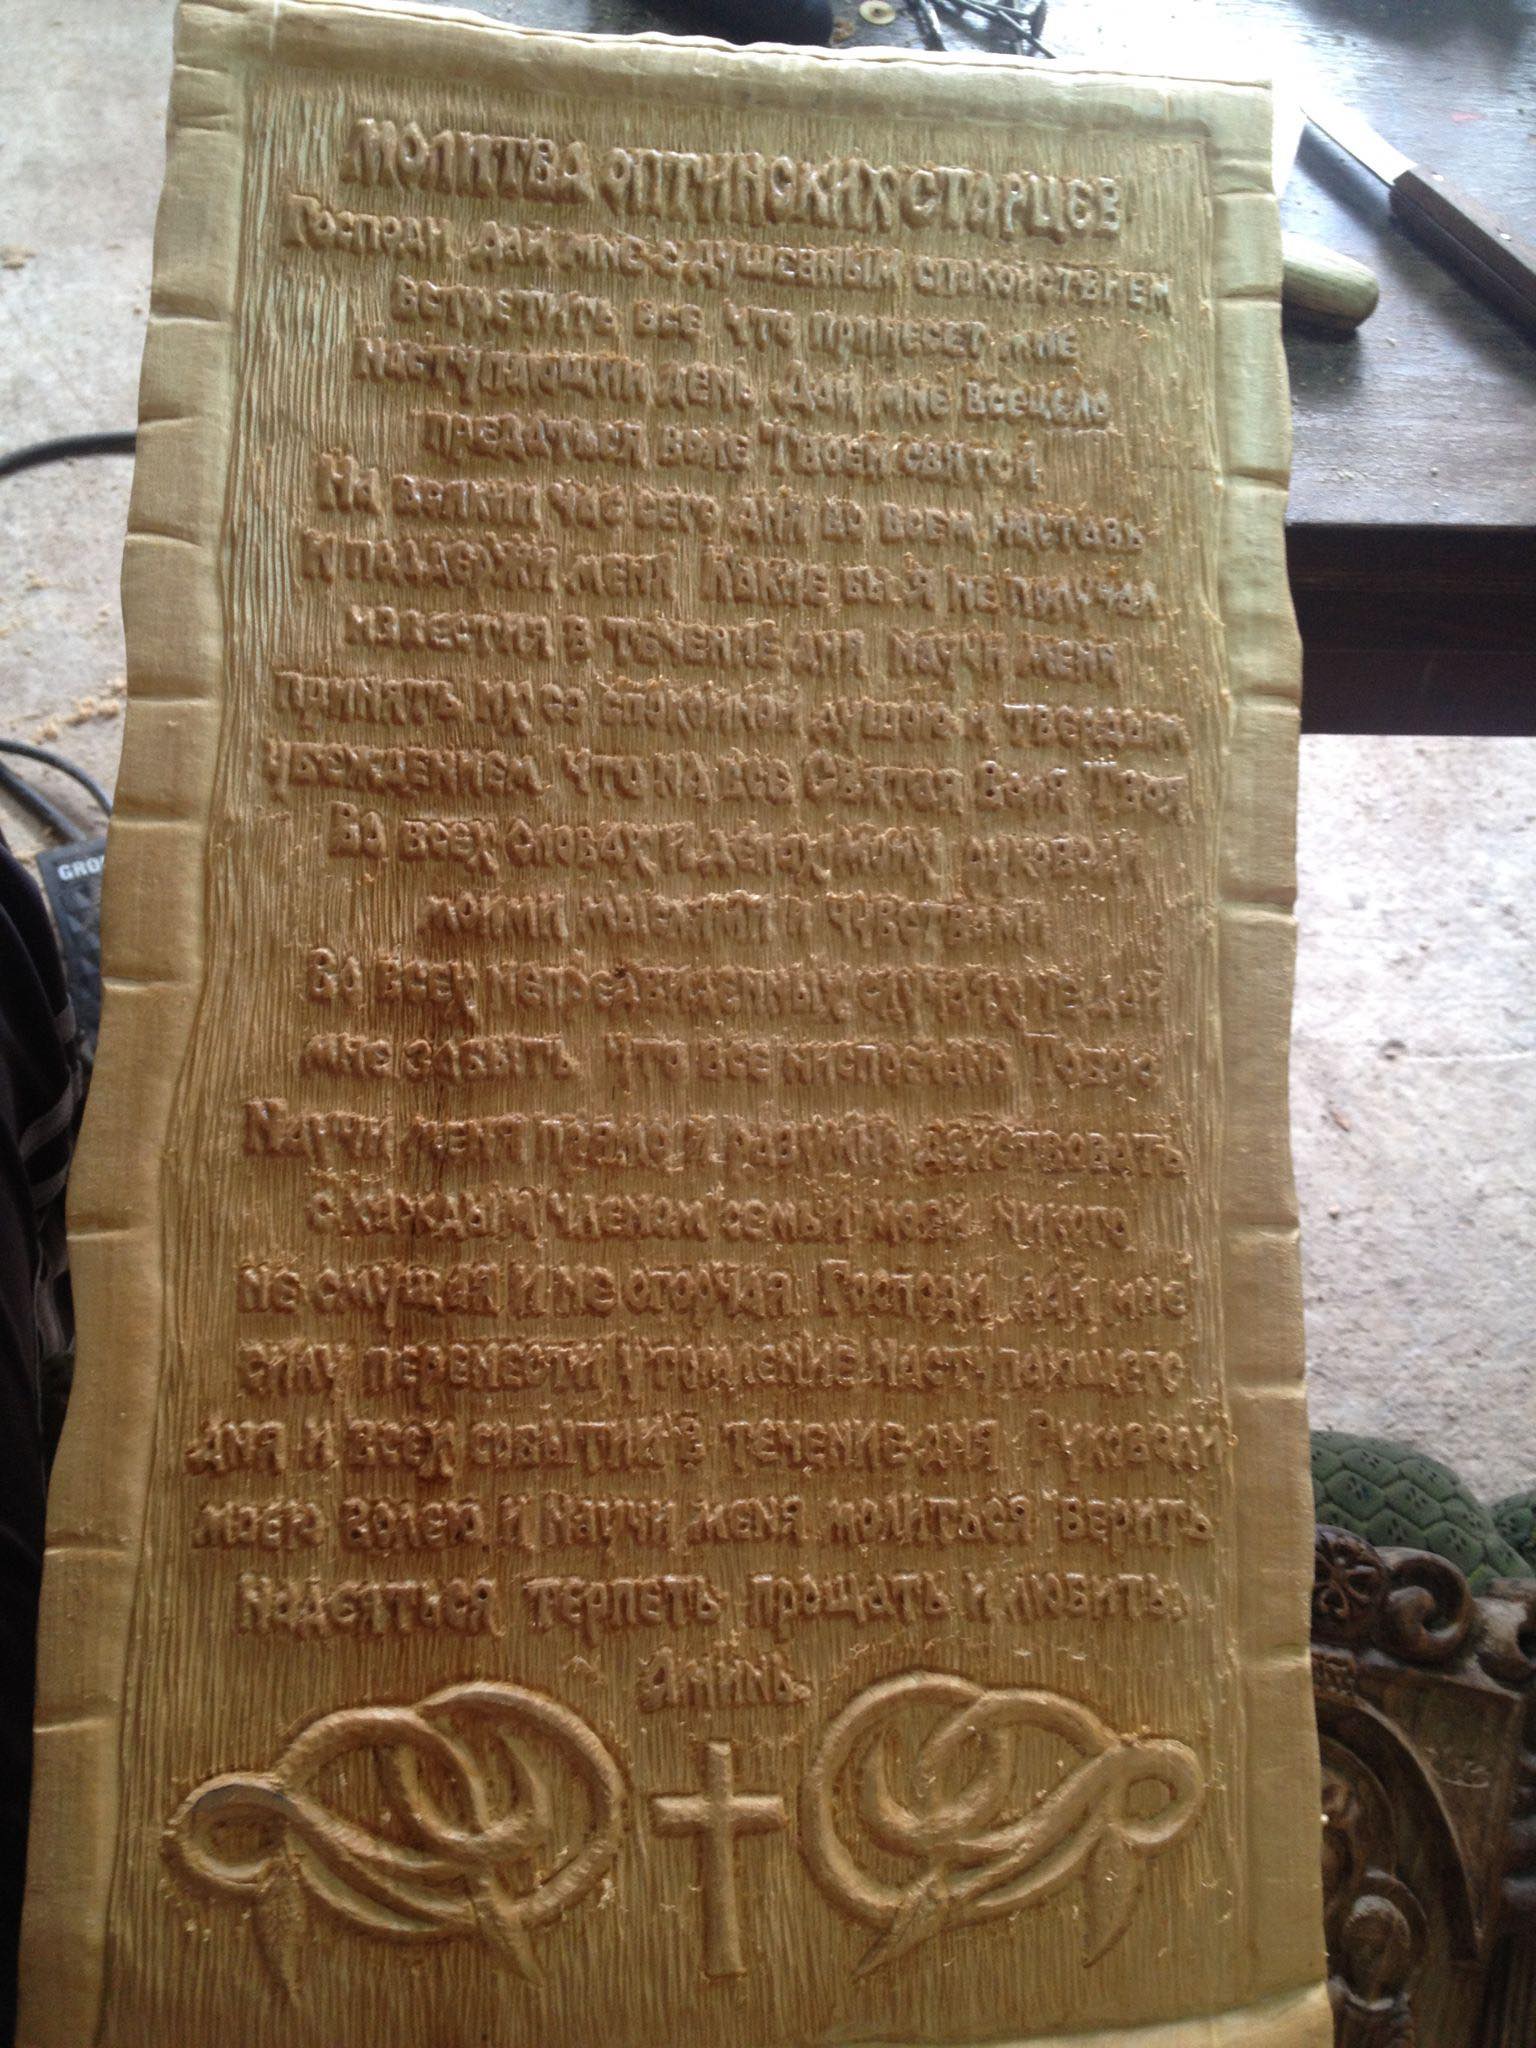 Молитва оптинских старцев
Господи дай мне с душевным спокойствием
встретить все что принесет мне
наступающий день Дай мне всецело
предаться воле Твоей святой
На всякий час сего дня во всем наставь
и поддержи меня Какие бы я не получал
известия в течение дня научи меня
принять их со спокойной душою и твердым
убеждением что на все Святая Воля Твоя
Во всех словах и делах моих руководи
моими мыслями и чувствами
Во всех непредвиденных случаях не дай
мне забыть что все ниспослано Тобою
Научи меня прямо и разумно действовать
с каждым членом семьи моей никого
не смущая и не огорчая Господи дай мне
силу перенести утомление наступающего
дня и всех событий в течение дня Руководи
моею волею и научи меня молиться верить
надеяться терпеть прощать и любить.
Аминь.
GRO